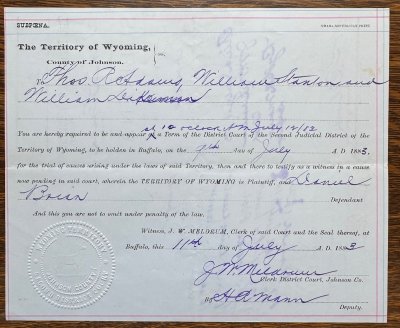 SUBPŒNA.
OMAHA REPUBLICAN PRINT.
The Territory of Wyoming,
County of Johnson.
To Thos. R Adams, William Stanton and
William
at 10 o'clock A.M. July 12/82
You are hereby required to be and appear at a Term of the District Court of the Second Judicial District of the
Territory of Wyoming, to be holden in Buffalo, on the day of July A. D. 1883.
for the trial of causes arising under the laws of said Territory, then and there to testify as a witness in a cause
now pending in said court, wherein the TERRITORY OF WYOMING is Plaintiff, and Daniel
Brian Defendant
And this you are not to omit under penalty of the law.
Witness, J. W. MELDRUM, Clerk of said Court and the Seal thereof, at
Buffalo, this 11th day of July A. D. 1883
J. W. Meldrum
Clerk District Court, Johnson Co.
By H. A. Mann
Deputy.
JOHNSON COUNTY